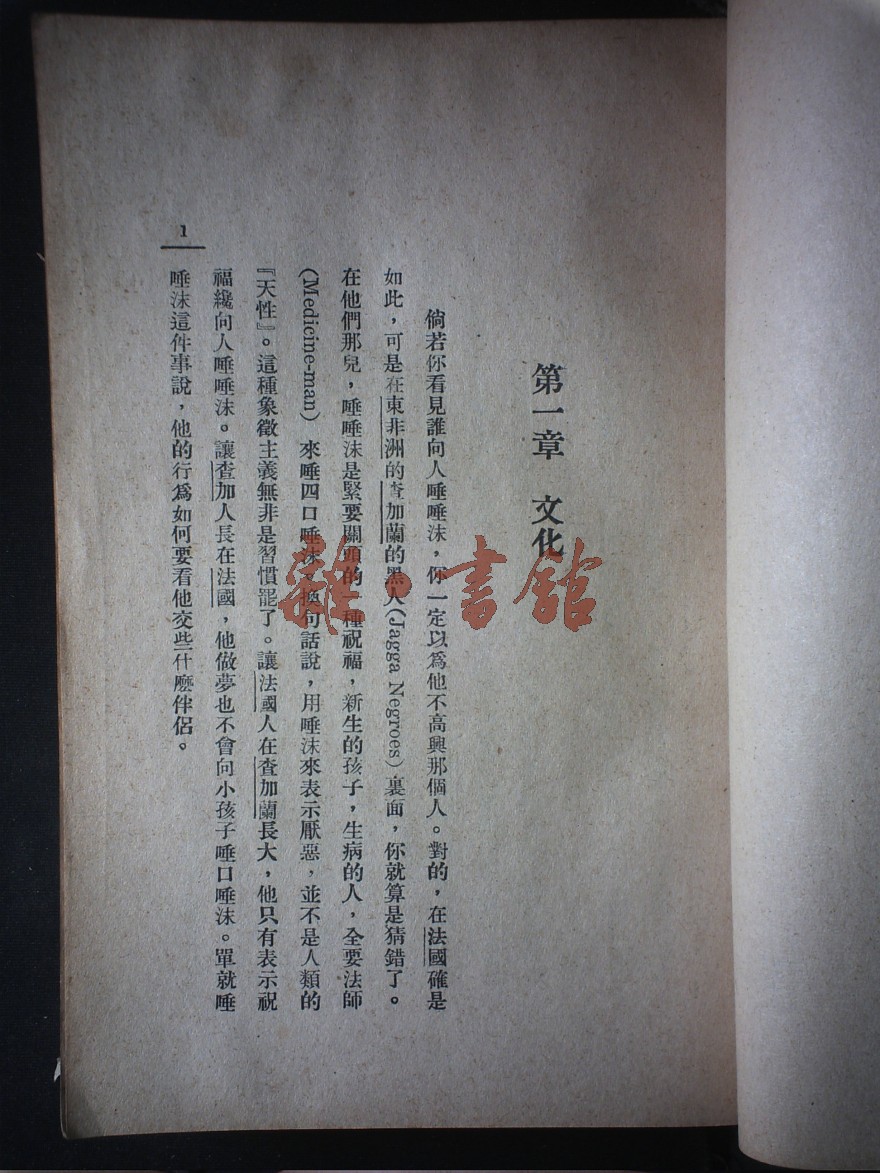 第一章　文化
倘若你看見誰向人唾唾沫，你一定以爲他不高興那個人。對的，在法國確是
如此，可是在東非洲的查加蘭的黑人(Jagga Negroes)裏面，你就算是猜錯了。
在他們那兒，唾唾沫是緊要關頭的一種祝福，新生的孩子，生病的人，全要法師
(Medicine-man) 來唾四口唾沫。換句話說，用唾沫來表示厭惡，並不是人類的
『天性』。這種象徵主義無非是習慣罷了。讓法國人在查加蘭長大，他只有表示祝
福纔向人唾唾沫。讓查加人長在法國，他做夢也不會向小孩子唾口唾沫。單就唾
唾沫這件事說，他的行爲如何要看他交些什麼伴侶。
1
雜·書館